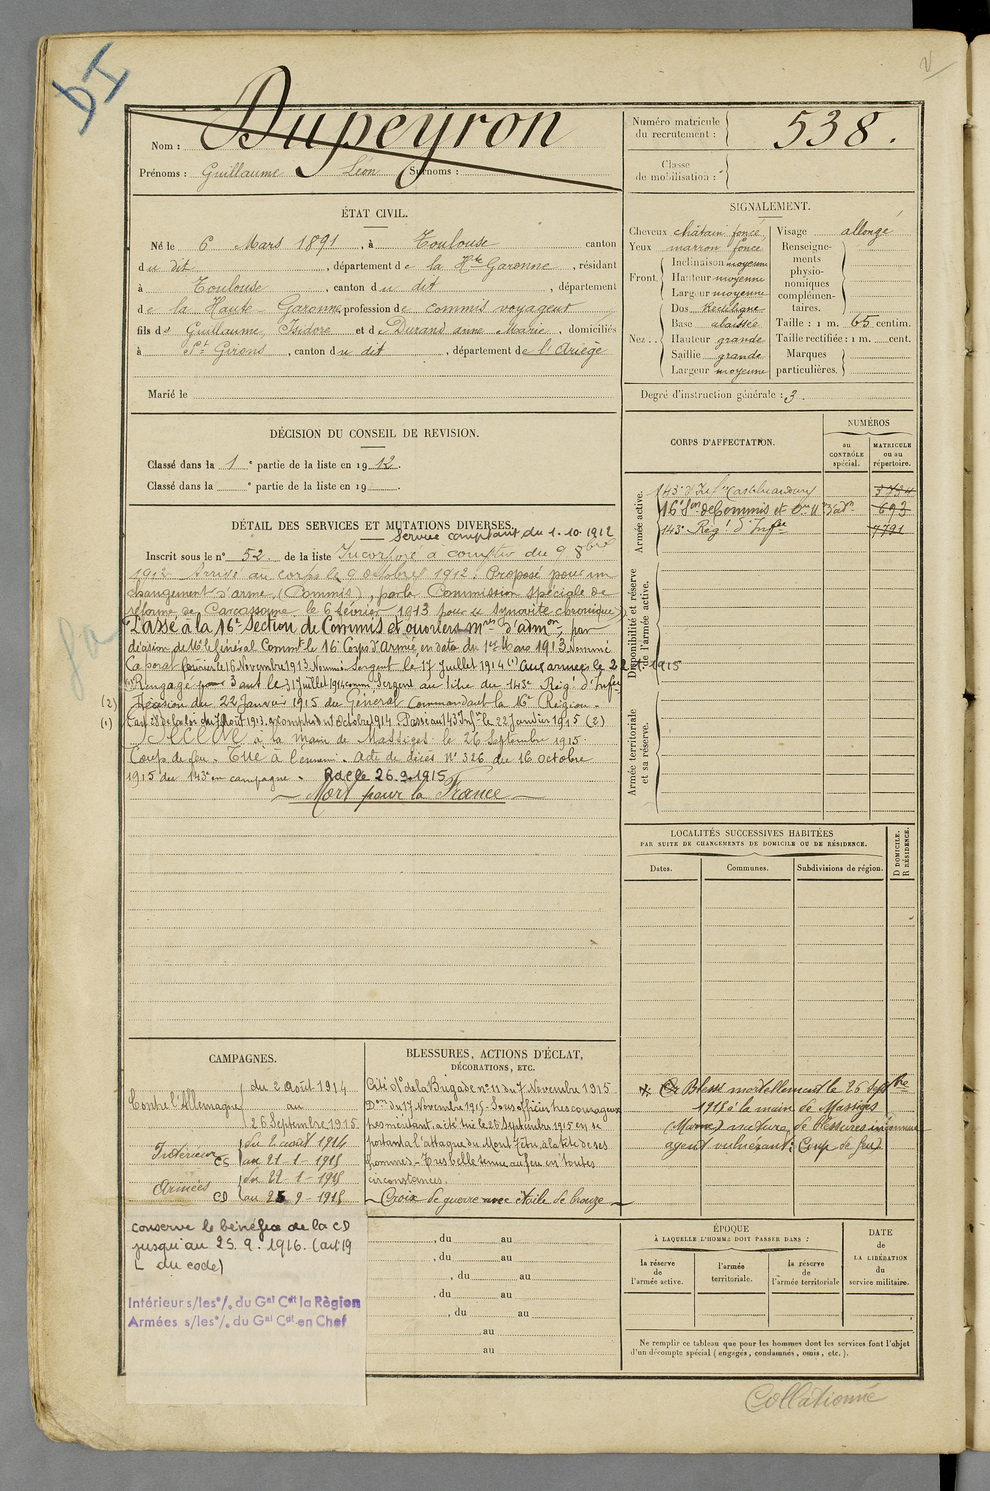 bI
Nom : Dupeyron
Prénoms : Guillaume Léon Surnoms :
Numéro matricule
du recrutement : 538.
Classe
de mobilisation :
ÉTAT CIVIL.
Né le 6 Mars 1891, à Toulouse canton
du dit, département de la Hte Garonne, résidant
à Toulouse, canton du dit, département
de la Haute Garonne, profession de commis voyageur
fils de Guillaume Isidore et de Durand anne Marie, domiciliés
à St Girons, canton du dit, département de l'Ariège
Marié le
SIGNALEMENT.
Cheveux châtain foncé
Yeux marron foncé
Front. Inclinaison moyenne
Hauteur moyenne
Largeur moyenne
Nez... Dos Rectiligne
Base abaissée
Hauteur grande
Saillie grande
Largeur moyenne
Visage allongé
Renseigne-
ments
physio-
nomiques
complémen-
taires.
Taille : 1 m. 65 centim.
Taille rectifiée : 1 m. cent.
Marques
particulières.
Degré d'instruction générale : 3.
DÉCISION DU CONSEIL DE REVISION.
Classé dans la 1e partie de la liste en 1912.
Classé dans la e partie de la liste en 19
CORPS D'AFFECTATION.
NUMÉROS
au
CONTRÔLE
spécial.
MATRICULE
ou au
répertoire.
Armée active.
143e d'Infie Castelnaudary
16e Son de Commis et Ors
693
143e Régt d'Infie
7791
Disponibilité et réserve
de l'armée active.
Armée territoriale
et sa réserve.
DÉTAIL DES SERVICES ET MUTATIONS DIVERSES.
Service comptant du 1.10.1912
Inscrit sous le n° 52 de la liste Incorporé à compter du 9 8bre
1912 Arrivé au corps le 9 octobre 1912. Proposé pour un
changement d'arme (Commis), par la Commission spéciale de
réforme de Carcassonne le 6 février 1913 pour synovite chronique
Passé à la 16e Section de Commis et ouvriers mres d'admon, par
décision de Mr le Général Commt le 16e Corps d'Armée, en date du 1er Mars 1913. Nommé
Caporal fourrier le 16 Novembre 1913. Nommé Sergent le 17 juillet 1914 (1) Aux armées le 22.1.1915
Rengagé pour 3 ans le 31 juillet 1914 comme Sergent au titre du 143e Régt d'Infie
(2) Décision du 22 Janvier 1915 du Général Commandant la 16e Région.
(1) art 28 de la loi du 7 Août 1913. à compter du 1er Octobre 1914. Passé au 143e Infie le 22 Janvier 1915 (2)
Décédé à la main de Massiges le 26 Septembre 1915.
Coup de feu. Tué à l'ennemi. Acte de décès N° 326 du 16 octobre
1915 du 143e en campagne. R d C le 26.9.1915
Mort pour la France
LOCALITÉS SUCCESSIVES HABITÉES
PAR SUITE DE CHANGEMENTS DE DOMICILE OU DE RÉSIDENCE.
Dates.
Communes.
Subdivisions de région.
D DOMICILE.
R RÉSIDENCE.
Blessé mortellement le 26 Septbre
1915 à la main de Massiges
(Marne) nature de blessures inconnue
agent vulnérant : Coup de feu
CAMPAGNES.
Contre l'Allemagne
du 2 août 1914
au
26 Septembre 1915.
Intérieur CS
du 2 août 1914
au 21-1-1915
Armées CD
du 22-1-1915
au 25-9-1915
conserve le bénéfice de la CD
jusqu'au 25.9.1916. (art 19
L du code)
Intérieur s/les °/. du Gal Cdt la Région
Armées s/les °/. du Gal Cdt en Chef
BLESSURES, ACTIONS D'ÉCLAT,
DÉCORATIONS, ETC.
Cité Oe de la Brigade n° 11 du 7 Novembre 1915
Don du 17 Novembre 1915 - Sous officier très courageux
très méritant, a été tué le 26 Septembre 1915 en se
portant à l'attaque du Mont Têtu à la tête de ses
hommes - Très belle tenue au feu en toutes
circonstances.
Croix de guerre avec étoile de bronze
, du au
, du au
, du au
, du au
, du au
au
au
ÉPOQUE
À LAQUELLE L'HOMME DOIT PASSER DANS :
la réserve
de
l'armée active.
l'armée
territoriale.
la réserve
de
l'armée territoriale
DATE
de
LA LIBÉRATION
du
service militaire.
Ne remplir ce tableau que pour les hommes dont les services font l'objet
d'un décompte spécial (engagés, condamnés, omis, etc.).
Collationné